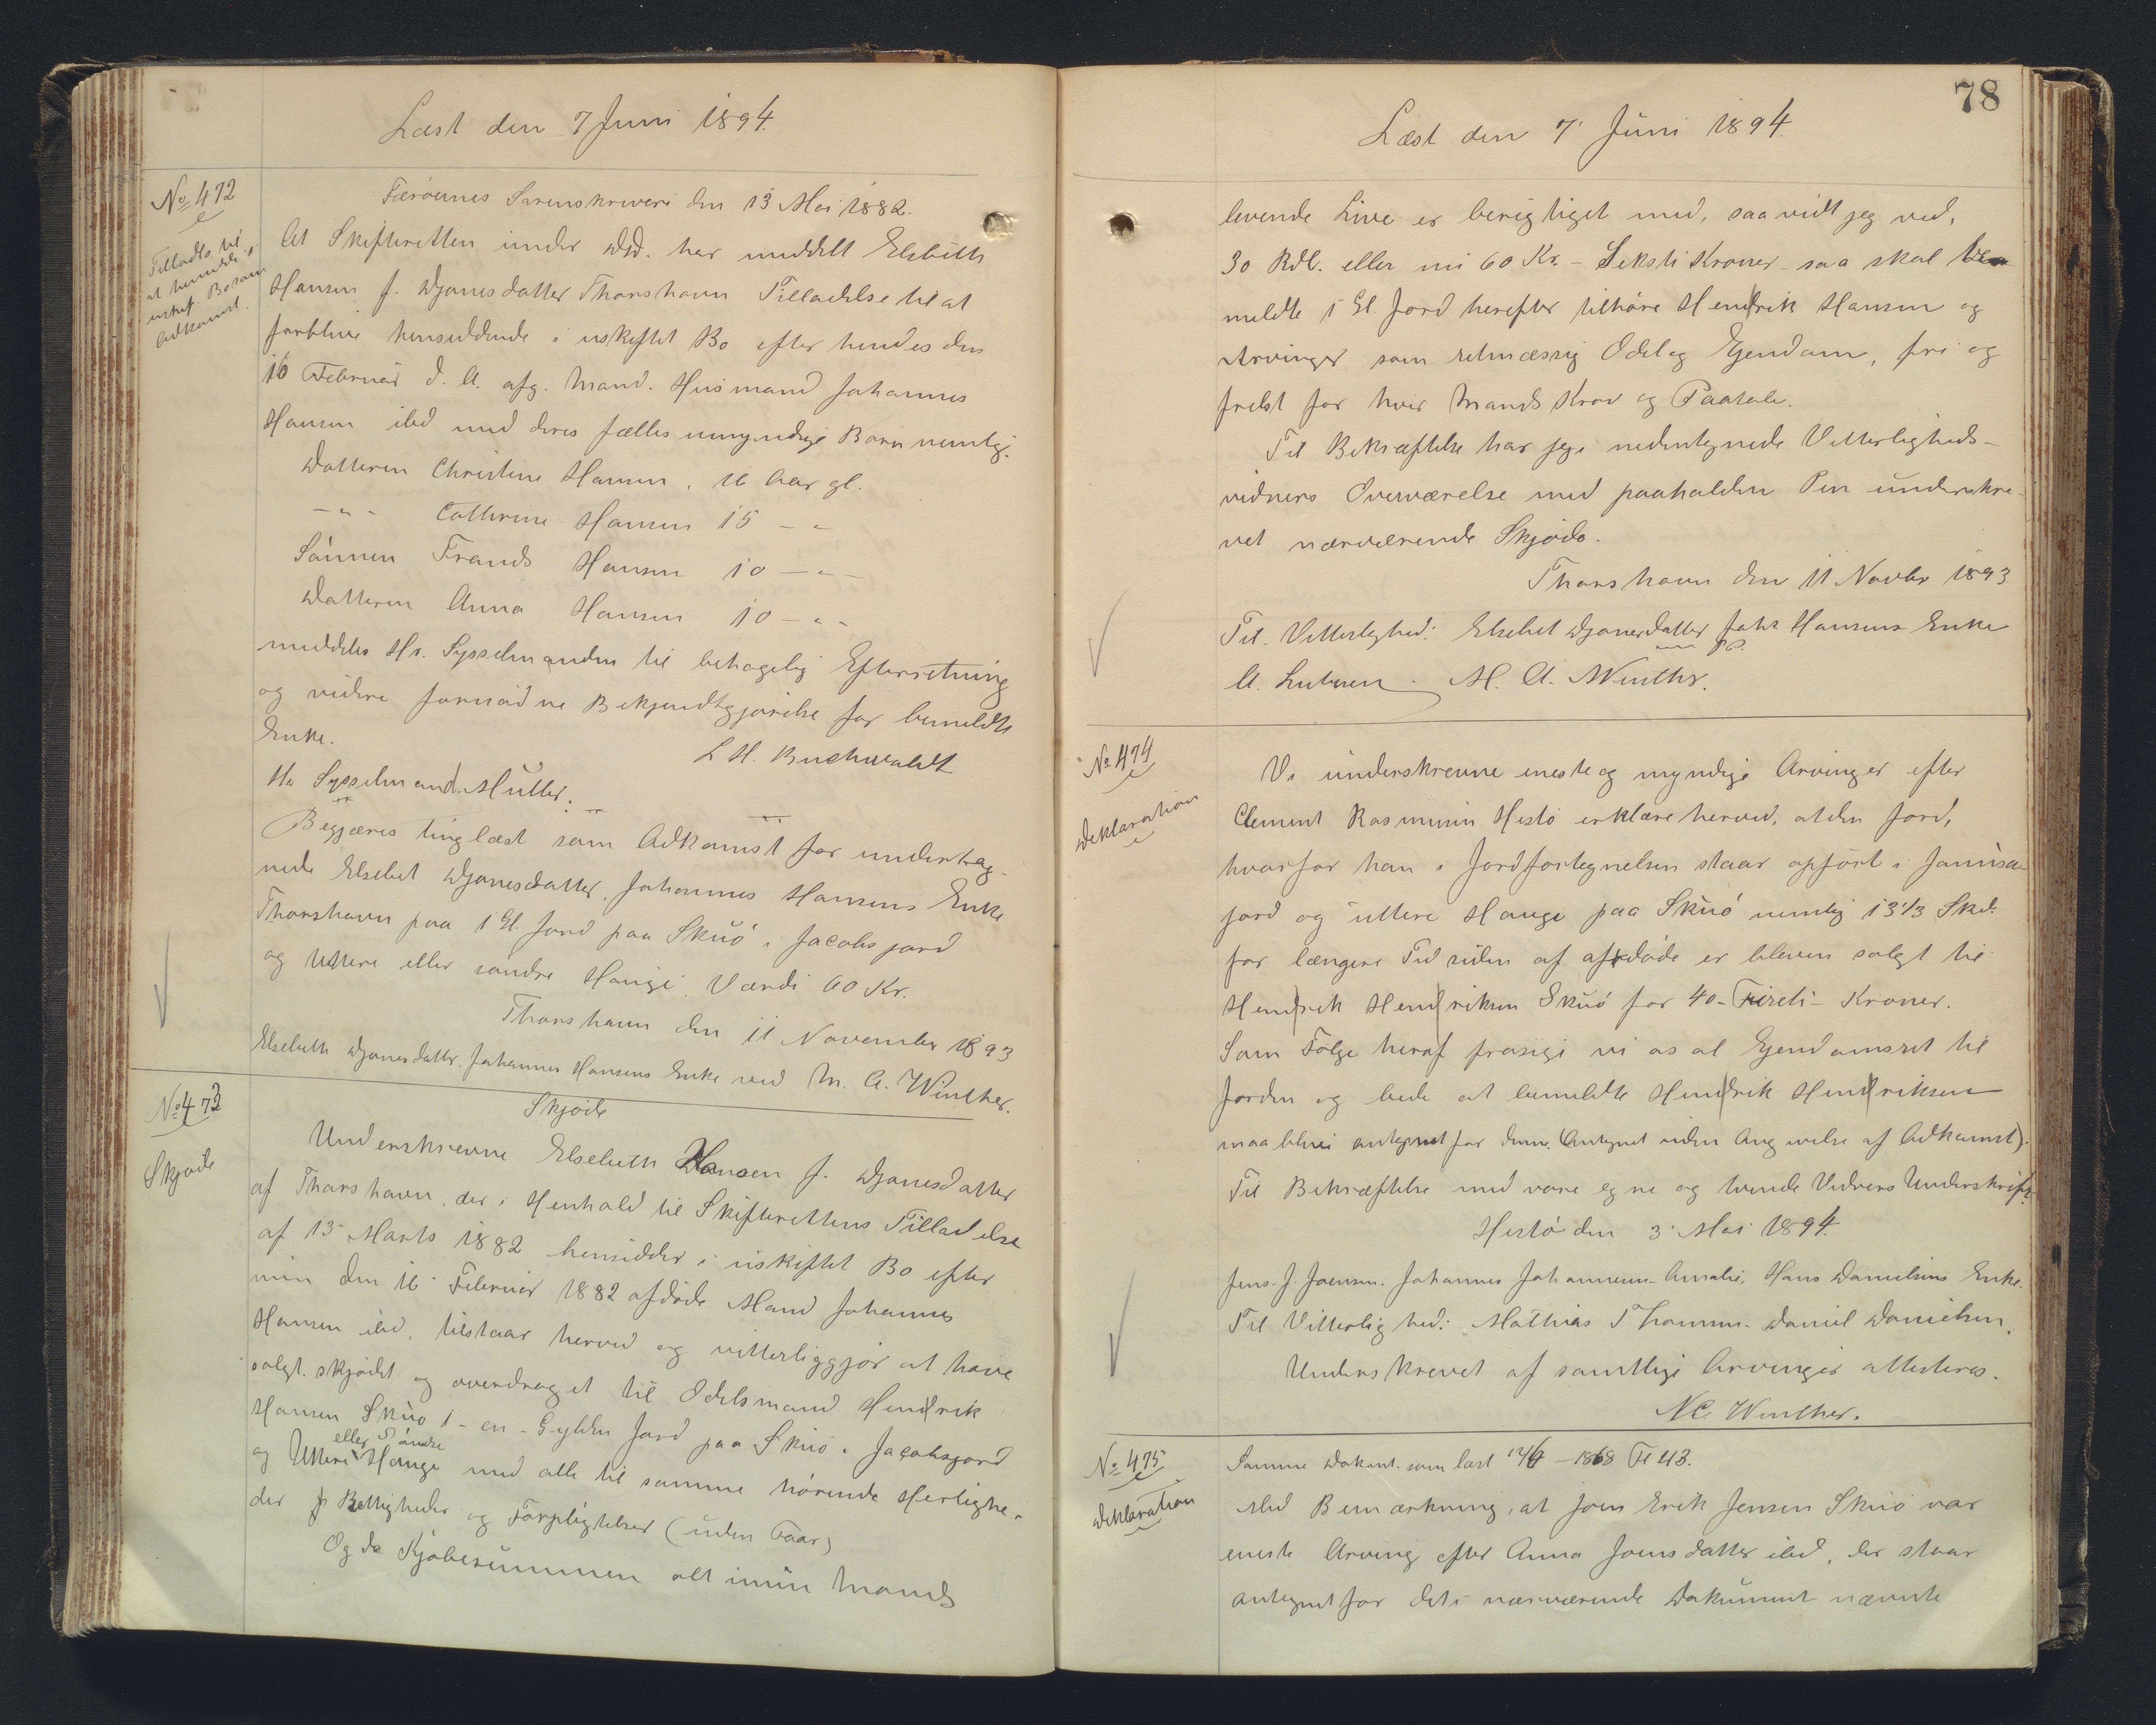 Læst den 7 Juni 1894.
No 472
Tilladls. til
at hensidde i
uskift. Bo som
Adkomst.
Færøernes Sorenskriveri den 13 Mai 1882.
At Skifteretten under D.D. har meddelt Elsbeth
Hansen f. Djonesdatter Thorshavn Tilladelse til at
forblive hensiddende i uskiftet Bo efter hendes den
16 Februar d. A. afg. Mand. Husmand Johannes
Hansen ibd med deres fælles umyndige Børn nemlig:
Datteren Christine Hansen, 16 Aar gl.
-"- Cathrine Hansen 15 -"-
Sønnen Frands Hansen 10 -"-
Datteren Anna Hansen 10 -"-
meddeles Hr. Sysselmanden til behagelig Efterretning
og videre fornødne Bekjendtgjørelse for bemeldte
Enke.
L H. Buchwaldt
Hr Sysselmand Müller.
Begjæres tinglæst som Adkomst for underteg-
nede Elsebet Djonesdatter, Johannes Hansens Enke
Thorshavn paa 1 Gl. Jord paa Skuø i Jacobsjord
og Uttere eller søndre Hauge. Værdi 60 Kr.
Thorshavn den 11 November 1893
Elsebeth Djonesdatter. Johannes Hansens Enke ved M. A. Winther.
No 473
Skjøde
Skjøde
Underskrevne Elsebeth Hansen f. Djonesdatter
af Thorshavn, der i Henhold til Skifterettens Tilladelse
af 13 Marts 1882 hensidder i uskiftet Bo efter
min den 16 Februar 1882 afdøde Mand Johannes
Hansen ibd, tilstaar herved og vitterliggjør at have
solgt. skjødet og overdraget til Odelsmand Hendrik
Hansen Skuø 1 - en - Gylden Jord paa Skuø i Jacobsjord
eller Søndre
og Uttere Hauge med alle til samme hørende Herlighe-
der Rettigheder og Forpligtelser (uden Faar)
Og da Kjøbesummen alt i min Mands
78
Læst den 7 Juni 1894.
levende Live er berigtiget med, saavidt jeg ved,
30 Rdl. eller nu 60 Kr. - Seksti Kroner - saa skal be-
meldte 1 Gl. Jord herefter tilhøre Hendrik Hansen og
Arvinger som retmæssig Odel og Ejendom, fri og
frelst for hver Mands Krav og Paatale.
Til Bekræftelse har jeg i nedentegnede Vitterligheds-
vidners Overværelse med paaholden Pen underskre-
vet nærværende Skjøde.
Thorshavn den 11 Novbr 1893
Til Vitterlighed: Elsebet Djonesdatter Johs Hansens Enke
m. f. P.
A. Lutzen. M. A. Winther.
No 474
Deklaration
Vi underskrevne eneste og myndige Arvinger efter
Clement Rasmusen Hestø erklære herved, at den Jord,
hvorfor han i Jordfortegnelsen staar opført i
jord og uttere Hauge paa Skuø nemlig 13 1/3 Skd.
for længere Tid siden af afdøde er bleven solgt til
Hendrik Hendriksen Skuø for 40 - Fireti - Kroner.
Som Følge heraf frasige vi os al Ejendomsret til
Jorden og bede at bemeldte Hendrik Hendriksen
maa blive antegnet for denne. (Antegnet uden Angivelse af Adkomst).
Til Bekræftelse med vore egne og tvende Vidners Underskrift.
Hestø den 3 Mai 1894.
Jens. J. Joensen. Johannes Johannesen. Amalie, Hans Danielsens Enke.
Til Vitterlighed: Mathias Thomsen. Daniel Danielsen.
Underskrevet af samtlige Arvinger attesteres.
Winther.
No 475
Deklaration
Samme Dokmt. som læst 12/6 - 1868 Fl 43.
Med Bemærkning, at Joen Erik Jensen Skuø var
eneste Arving efter Anna Joensdatter ibd, der staar
antegnet for det i nærværende Dokument nævnte